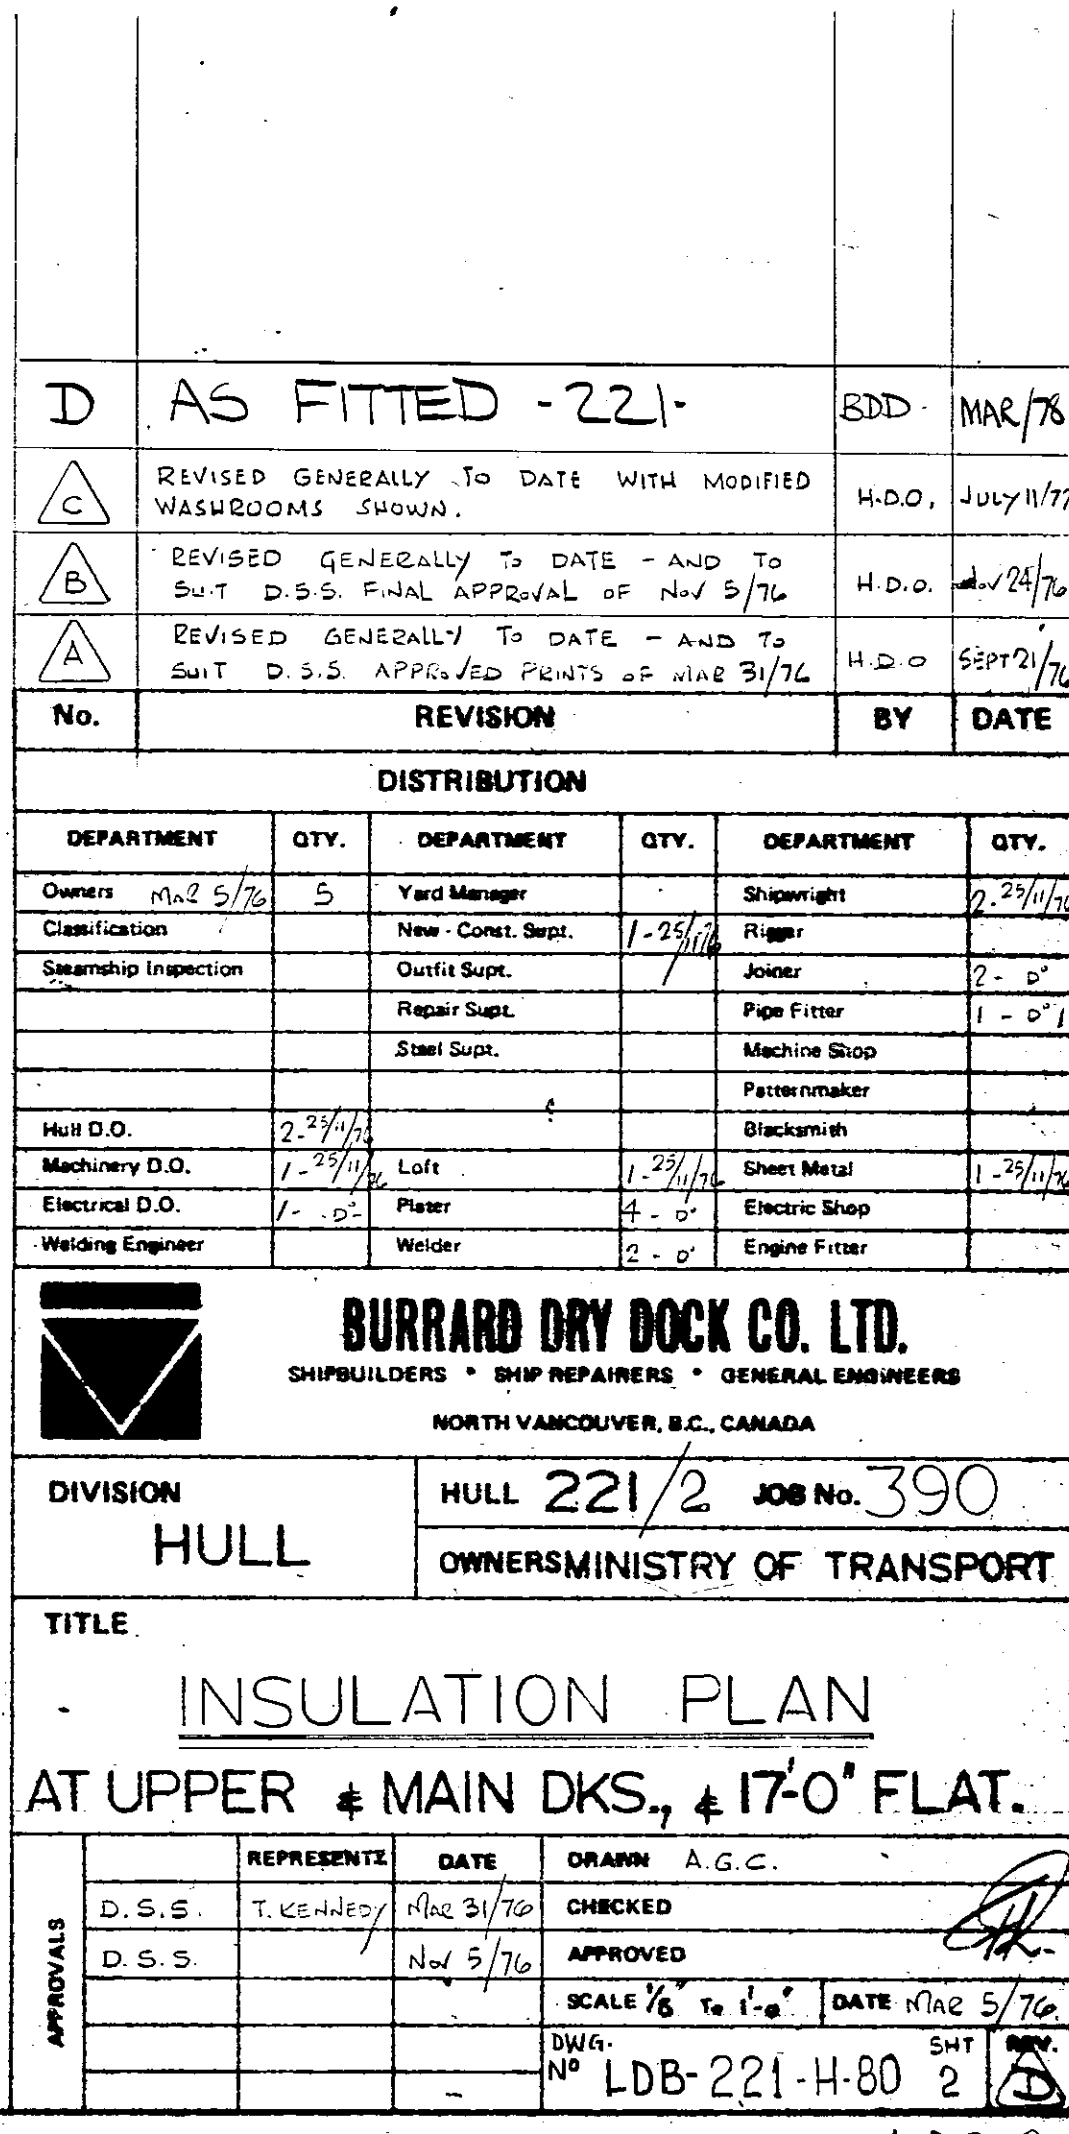 D AS FITTED - 221 - BDD. MAR/78
C REVISED GENERALLY TO DATE WITH MODIFIED
WASHROOMS SHOWN. H.D.O. JULY 11/77
B REVISED GENERALLY TO DATE - AND TO
SUIT D.S.S. FINAL APPROVAL OF NOV 5/76 H.D.O. NOV 24/76
A REVISED GENERALLY TO DATE - AND TO
SUIT D.S.S. APPROVED PRINTS OF MAR 31/76 H.D.O SEPT 21/76
No. REVISION BY DATE
DISTRIBUTION
DEPARTMENT QTY. DEPARTMENT QTY. DEPARTMENT QTY.
Owners MAR 5/76 5 Yard Manager Shipwright 2-25/11/76
Classification New - Const. Supt. 1-25/11/76 Rigger
Steamship Inspection Outfit Supt. Joiner 2 - D°
Repair Supt. Pipe Fitter 1 - D°
Steel Supt. Machine Shop
Patternmaker
Hull D.O. 2-25/11/76 Blacksmith
Machinery D.O. 1-25/11/76 Loft 1-25/11/76 Sheet Metal 1-25/11/76
Electrical D.O. 1- D° Plater 4 - D° Electric Shop
Welding Engineer Welder 2 - D° Engine Fitter
BURRARD DRY DOCK CO. LTD.
SHIPBUILDERS * SHIP REPAIRERS * GENERAL ENGINEERS
NORTH VANCOUVER, B.C., CANADA
DIVISION HULL 221/2 JOB No. 390
HULL OWNERS MINISTRY OF TRANSPORT
TITLE
INSULATION PLAN
AT UPPER & MAIN DKS., & 17'-0" FLAT.
APPROVALS
REPRESENTZ DATE DRAWN A.G.C.
D.S.S. T. KENNEDY MAR 31/76 CHECKED
D.S.S. NOV 5/76 APPROVED
SCALE 1/8" TO 1'-0" DATE MAR 5/76
DWG. SHT REV.
Nº LDB-221-H-80 2 D